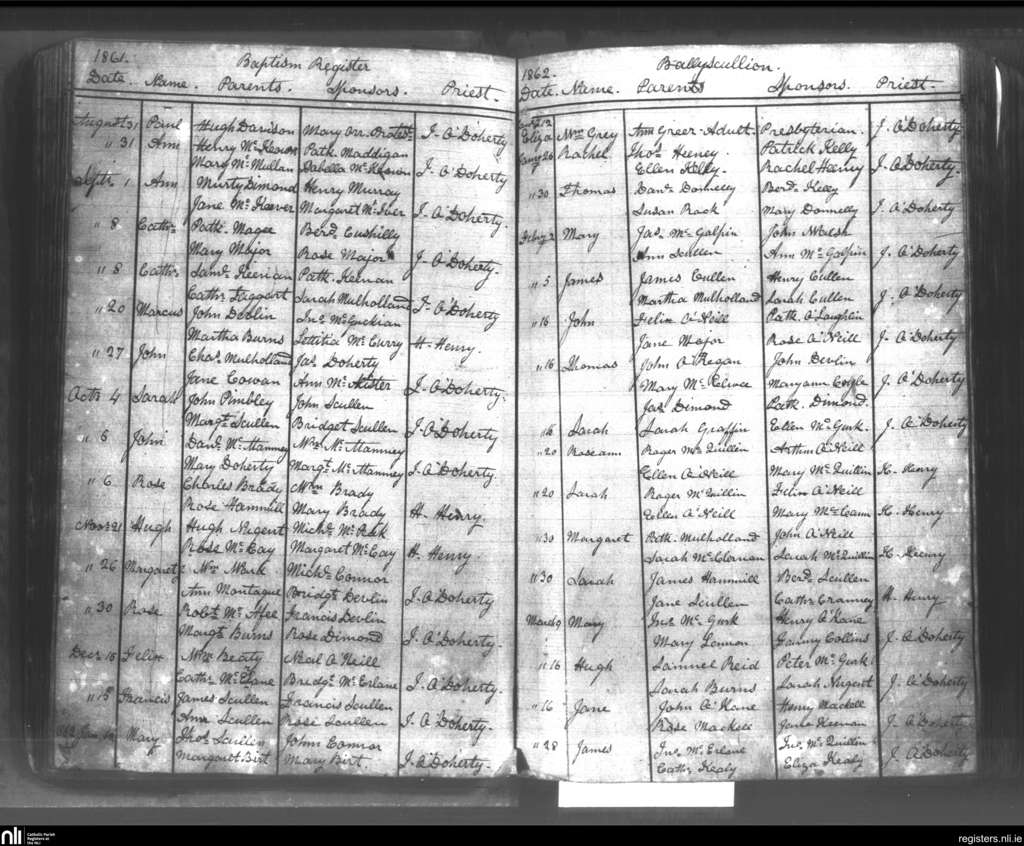 1861. Baptism Register
Date. Name. Parents. Sponsors. Priest.
August 31 Paul Hugh Davison Mary Orr. Protest. J. O'Doherty
" 31 Ann Henry McKeown Patk. Maddigan
Mary McMullan Isabella McKeown J. O'Doherty
Septr. 1 Ann Murty Dimond Henry Murray
Jane McKeever Margaret McIver J. O'Doherty
" 8 Cathn. Patk. Magee Berd. Cushilly
Mary Major Rose Major J. O'Doherty.
" 8 Cathn. Saml. Keenan Patk. Keenan
Cathn. Taggart Sarah Mulholland J. O'Doherty
" 20 Marcus John Devlin Jno. McGuckian
Martha Burns Letitia McCurry H. Henry.
" 27 John Chas. Mulholland Jas. Doherty
Jane Cowan Ann J. O'Doherty.
Octr. 4 Sarah John Pimbley John Scullen
Margt. Scullen Bridget Scullen J. O'Doherty
" 6 John Danl. McAtamney Wm. McAtamney
Mary Doherty Margt. McAtamney J. O'Doherty.
" 6 Rose Charles Brady Wm. Brady
Rose Hammill Mary Brady H. Henry
Novr. 21 Hugh Hugh Nugent Michl. McPeak
Rose McCay Margaret McCay H. Henry.
" 26 Margaret Wm. Michl. Connor
Ann Montague Bridgt. Devlin J. O'Doherty
" 30 Rose Robt. McAfee Francis Devlin
Margt. Burns Rose Dimond J. O'Doherty.
Decr. 15 Felix Wm. Beaty Neal O'Neill
Cathn. McErlane Bredgt. McErlane J. O'Doherty.
" 15 Francis James Scullen Francis Scullen
Ann Scullen Rose Scullen J. O'Doherty.
1862 Jany. Mary Thos. Scullin John Connor
Margaret Birt Mary Birt. J. O'Doherty.
1862. Ballyscullion.
Date. Name. Parents Sponsors. Priest.
12
Eliza Wm. Grey Ann Greer. Adult. Presbyterian. J. O'Doherty
Jany 26 Rachel Thos. Heeney. Patrick Kelly
Ellen Kelly. Rachel Heeney J. O'Doherty
" 30 Thomas Danl. Donnelly Berd. Kelly
Susan Rock Mary Donnelly J. O'Doherty
Feby 2 Mary Jas. McGalpin John Walsh
Ann Scullen Ann McGalpin J. O'Doherty
" 5 James James Cullen Henry Cullen
Martha Mulholland Sarah Cullen J. O'Doherty
" 16 John Felix O'Neill Patk. O'Laughlin
Jane Major Rose O'Neill J. O'Doherty
" 16 Thomas John O'Regan John Devlin
Mary Maryann Coyle J. O'Doherty
Jas. Dimond Patk. Dimond.
" 16 Sarah Sarah Graffin Ellen McGurk. J. O'Doherty
" 20 Roseann Roger McQuillin Arthur O'Neill
Ellen O'Neill Mary McQuillin H. Henry
" 20 Sarah Roger McQuillin Felix O'Neill
Ellen O'Neill Mary H. Henry
" 30 Margaret Patk. Mulholland John O'Neill
Sarah McClernan Sarah McQuillin H. Henry
" 30 Sarah James Hammill Berd. Scullen
Jane Scullen Cathn. Cranney H. Henry
March 9 Mary Jno. McGurk Henry O'Kane
Mary Lennon Fanny Collins J. O'Doherty
" 16 Hugh Samuel Reid Peter McGurk
Sarah Burns Sarah Nugent J. O'Doherty
" 16 Jane John O'Kane Henry Mackell
Rose Mackell Jane Keenan J. O'Doherty
" 28 James Jno. McErlane Jno. McQuillin
Cathn. Kealy Eliza Kealy J. O'Doherty
nli Catholic Parish Registers at the NLI
registers.nli.ie